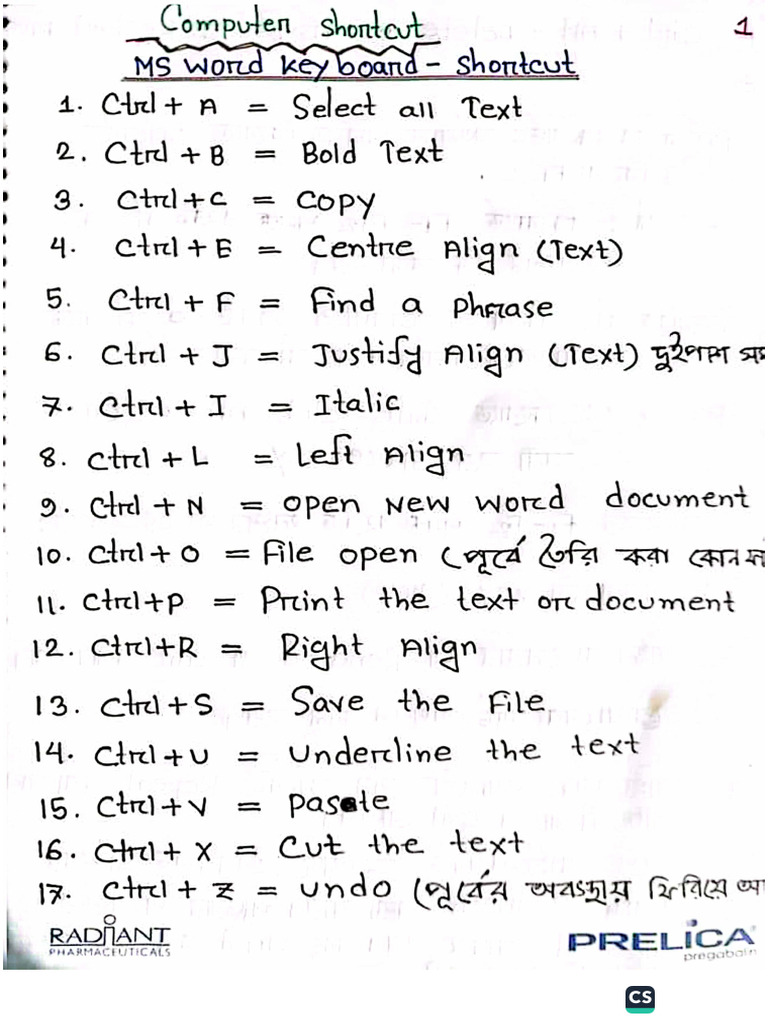 Computer shortcut
1
MS Word Key board - Shortcut
1. Ctrl + A = Select all Text
2. Ctrl + B = Bold Text
3. Ctrl + C = Copy
4. Ctrl + E = Centre Align (Text)
5. Ctrl + F = Find a phrase
6. Ctrl + J = Justify Align (Text) দুইপাশ
7. Ctrl + I = Italic
8. Ctrl + L = Left Align
9. Ctrl + N = Open New Word document
10. Ctrl + O = File open (পূর্বে তৈরি করা কোন
11. Ctrl + P = Print the text or document
12. Ctrl + R = Right Align
13. Ctrl + S = Save the File
14. Ctrl + U = Underline the text
15. Ctrl + V = Paste
16. Ctrl + X = Cut the text
17. Ctrl + Z = Undo (পূর্বের অবস্থায় ফিরিয়ে
RADIANT PRELICA
PHARMACEUTICALS pregabalin
CS